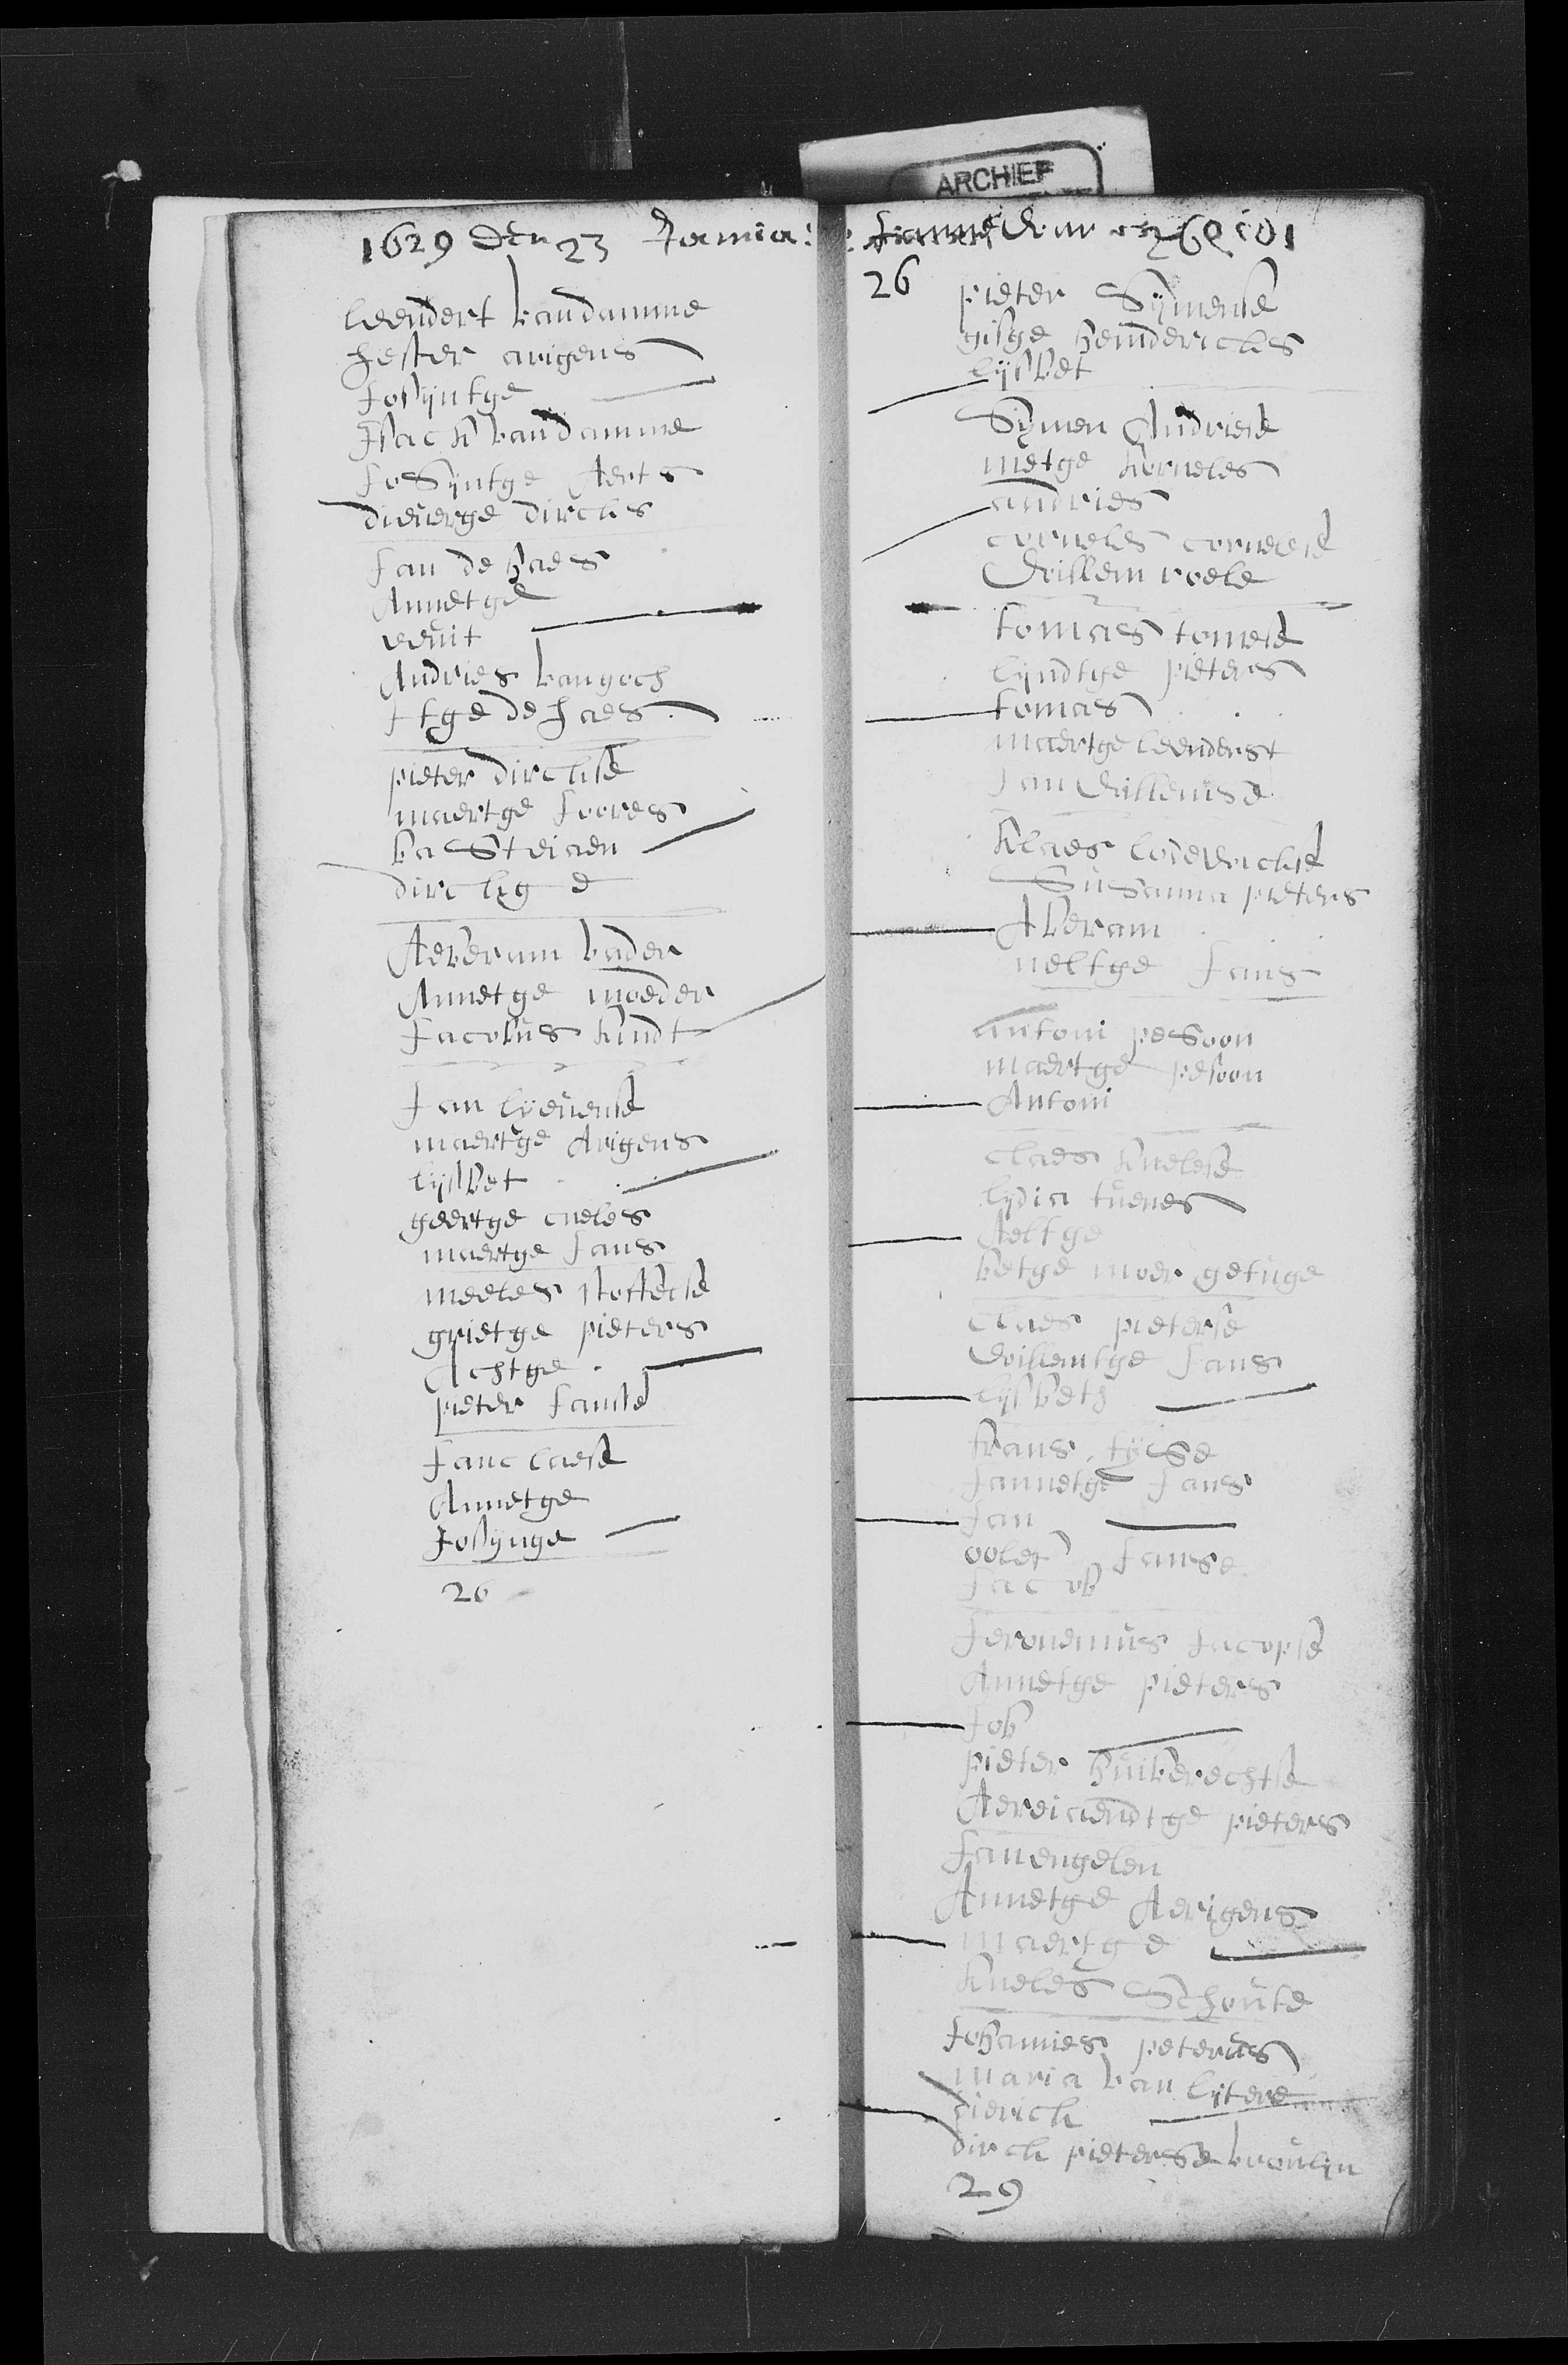 ARCHIEF
1629 den 23 Januia:
leendert vandamme
hester arigens
Josijntge
Isack vandamme
JoSijntge Aerts
dieuerge dircks
Jan de haes
Annetge
Andries vangoch
Itge de haes
pieter dirckse
maertge Joores
baStiaen
dirckge
Aeberam vader
Annetge moeder
Jacobus kindt
Jan lyeuense
maertge Arigens
lijsbet
geertge cneles
maertge Jans
meeles
grietge pieters
Achtge
pieter Janse
Jan claese
Annetge
Josynge
26
26
pieter Symense
gisge heinderickes
lijsbet
Symen Andriese
metge korneles
andries
corneles cornelese
Willem roele
tomas tomese
lijndtge pieters
tomas
maertge leenderst
Jan Willemse
klaes lodewickse
SuSanna pieters
Aberam
neltge Jans
antoni peSoon
maertge pesoon
Antoni
claes knelese
lijdia tuenes
Aeltge
betge moer getuge
claes pieterse
Willemtge Jans
lijsbeth
frans tijsse
Jannetge Jans
Jan
Janse
Jacob
Jeronemus Jacopse
Annetge pieters
Job
pieter huiberechtse
Aereiaendtge pieters
Jan engelen
Annetge Aerigens
maertge
kneles Schoute
Johannes peterus
maria van lijtere
dierick
dirck pieterse
29